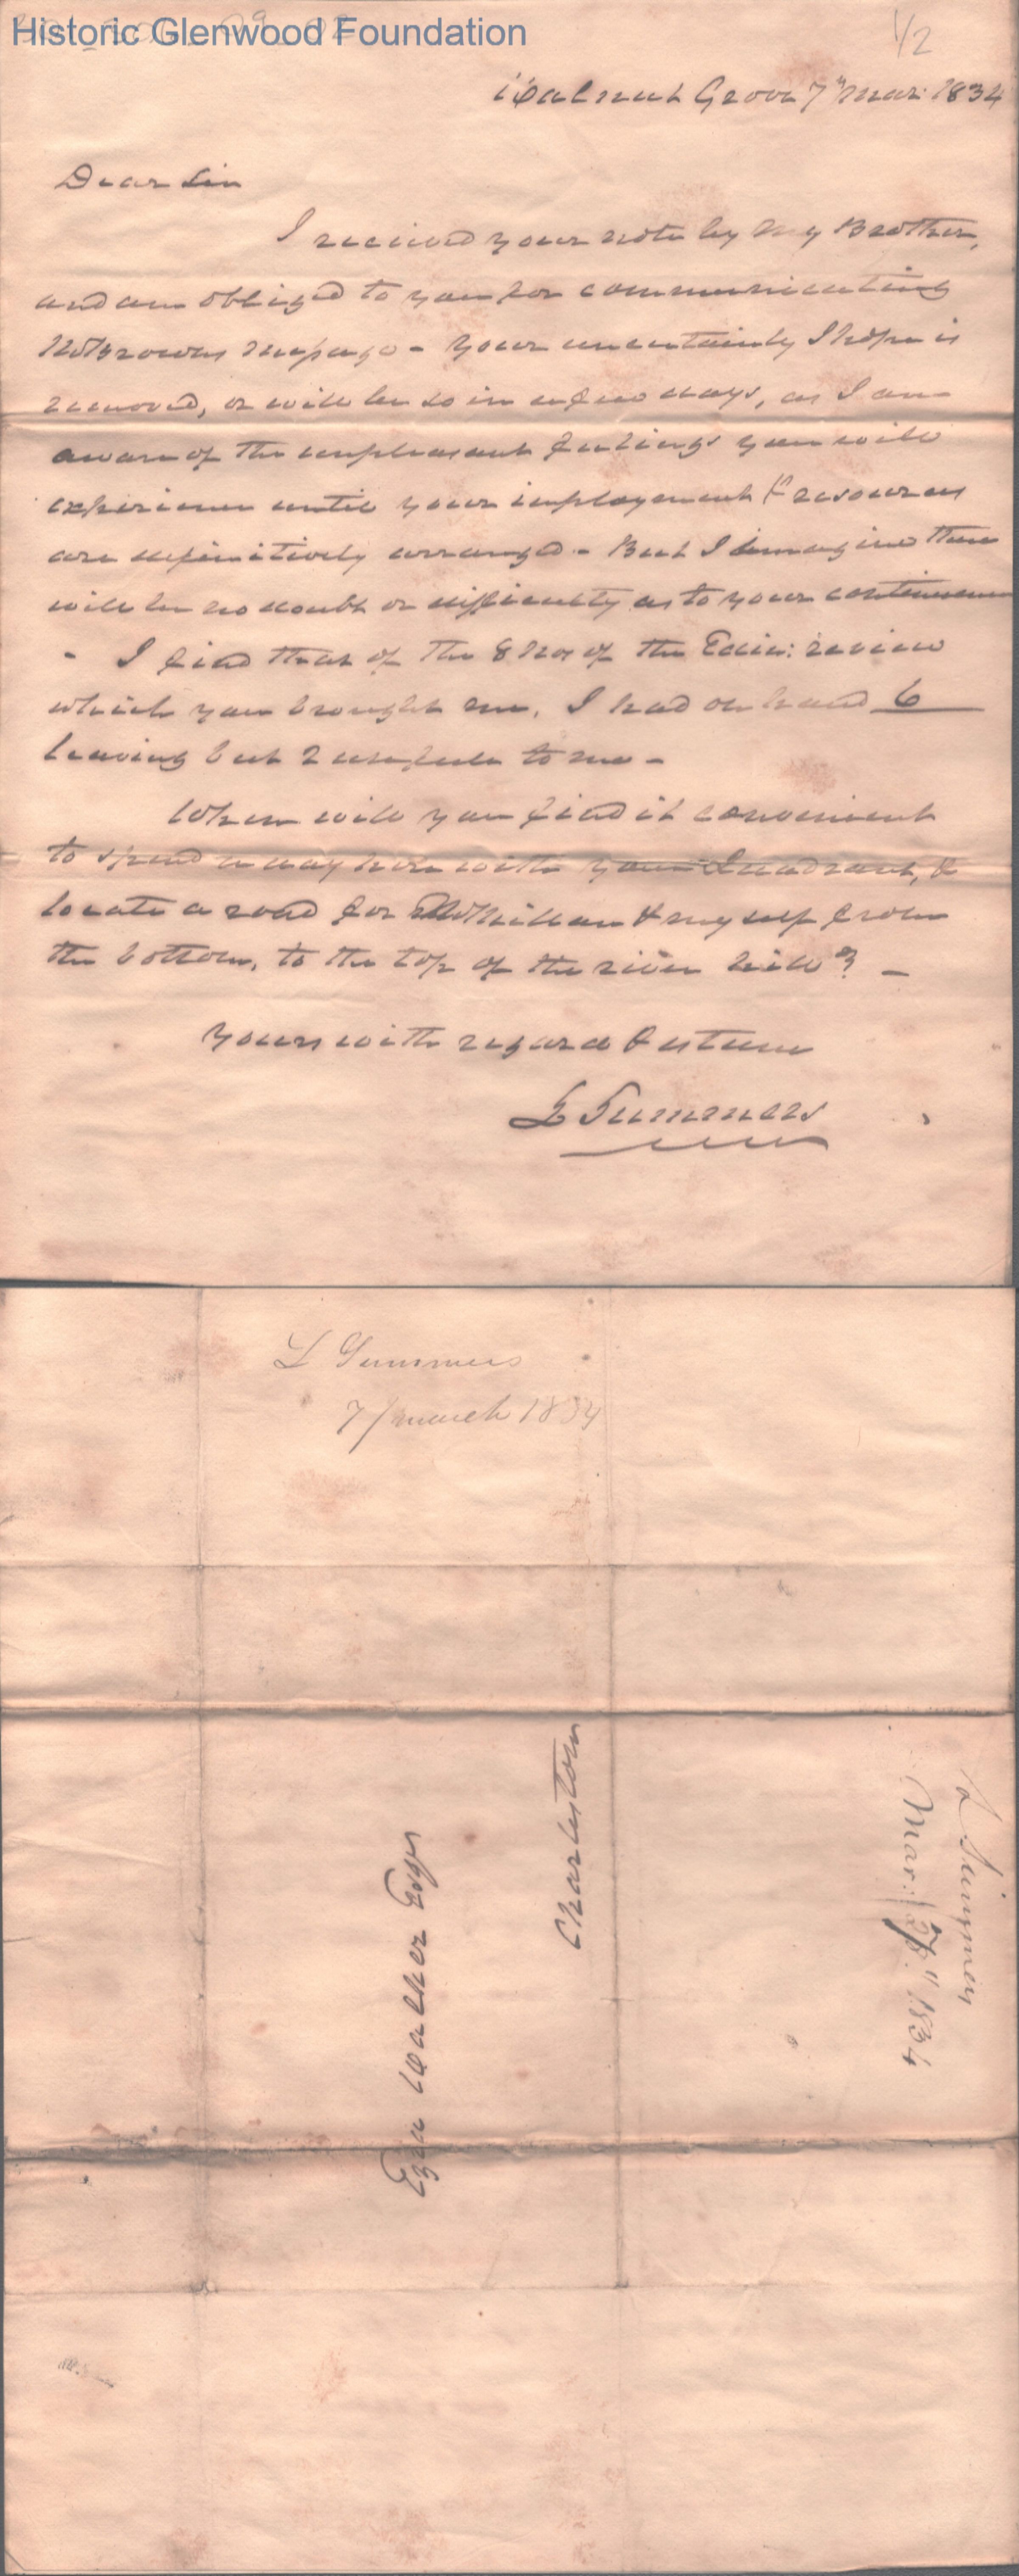 Historic Glenwood Foundation
1/2
Walnut Grove 7th Mar: 1834
Dear Sir
I received your note by my Brother,
and am obliged to you for communicating
McBrowns message - Your uncertainty I hope is
removed, or will be so in a few days, as I am
aware of the unpleasant feelings you will
experience until your imployement & resources
are definitively arranged - But I immagine there
will be no doubt or difficulty as to your continuence
- I find that of the 8 Nos of the Edin: review
which you brought me, I had on hand 6
leaving but 2 usefull to me -
When will you find it convenient
to spend a day here with your Quadrant, &
locate a road for McMillan & myself from
the bottom, to the top of the river hill? -
Yours with regard & esteem
L Summers
L Summers
7/march 1834
Ezra Walker Esqr
Charleston
L Summers
Mar: 1834